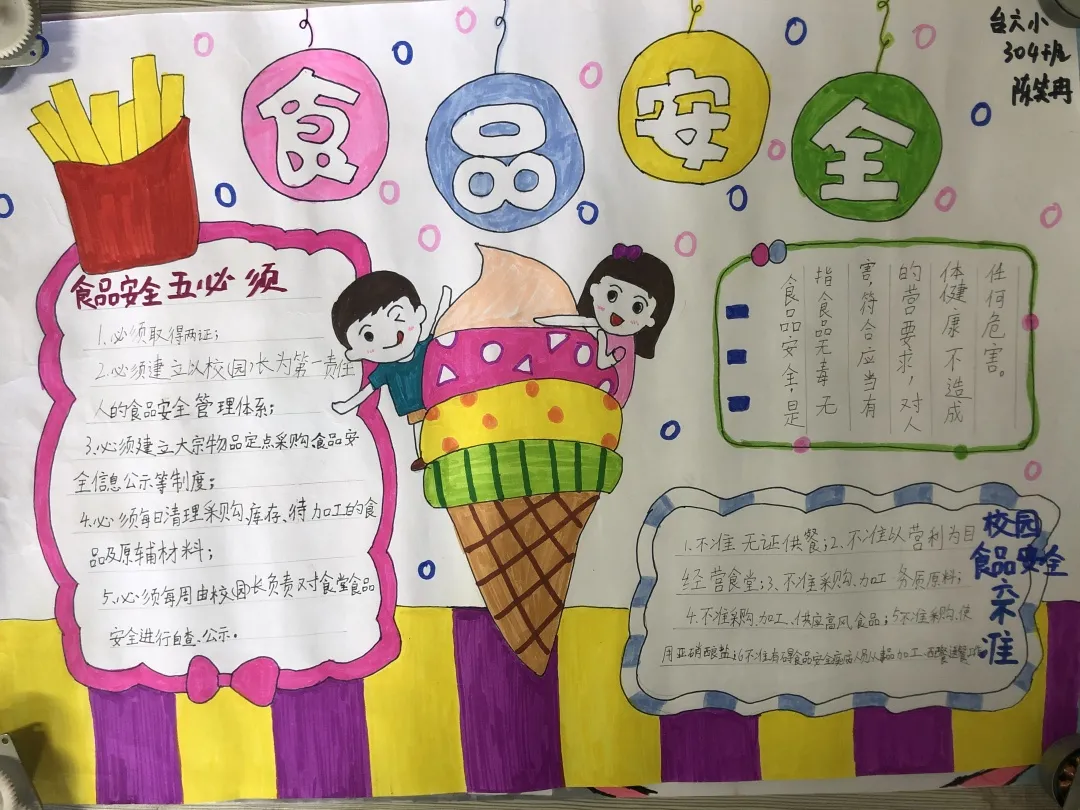 食品安全
台六小
304班
陈笑冉
食品安全五必须
1.必须取得两证;
2.必须建立以校(园)长为第一责任
人的食品安全管理体系;
3.必须建立大宗物品定点采购、食品安
全信息公示等制度;
4.必须每日清理采购、库存、待加工的食
品及原辅材料;
5.必须每周由校(园)长负责对食堂食品
安全进行自查、公示。
食品安全,是
指食品无毒无
害,符合应当有
的营要求,对人
体健康不造成
任何危害。
校园
食品安全
六不准
1.不准无证供餐;2.不准以营利为目
经营食堂;3.不准采购、加工劣质原料;
4.不准采购、加工、供应高风食品;5不准采购、使
用亚硝酸盐;6不准有碍食品安全疾病人员从事品加工